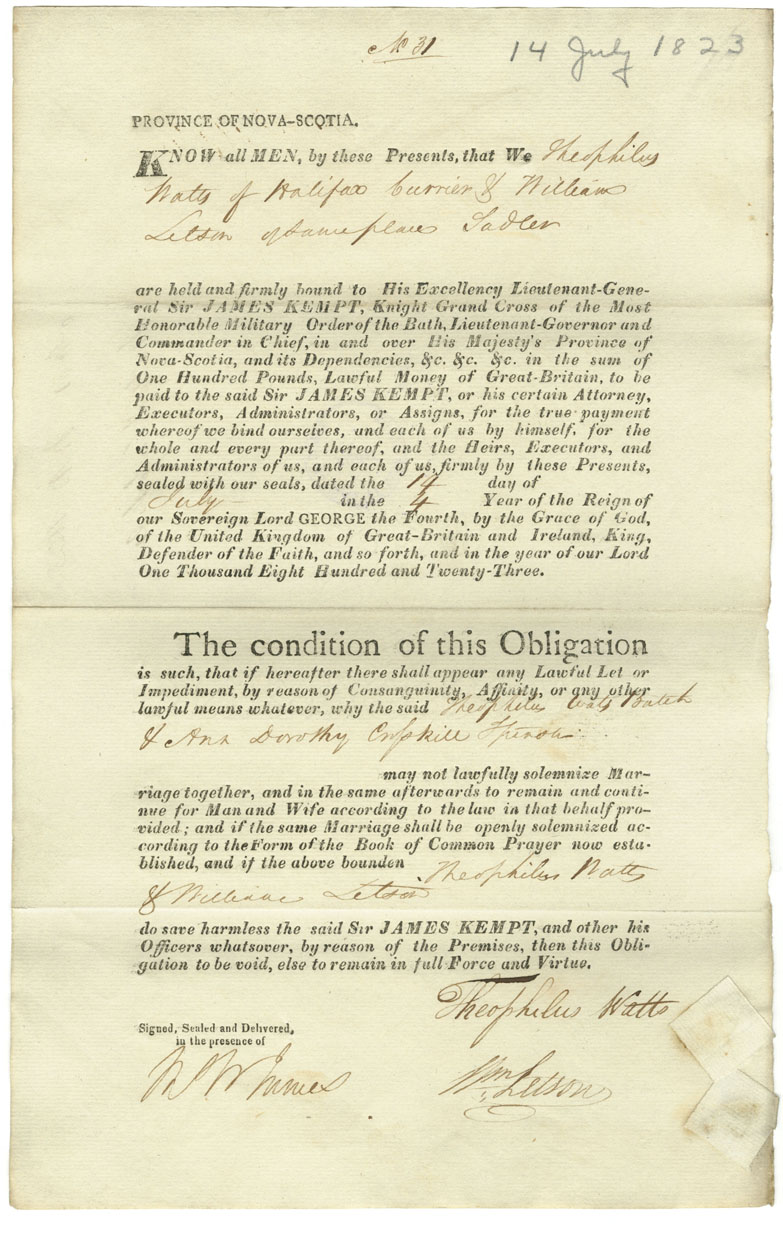 No 31
14 July 1823
PROVINCE OF NOVA-SCOTIA.
KNOW all MEN, by these Presents, that We Theophilus
Watts of Halifax Currier & William
Letson of same place Sadler
are held and firmly bound to His Excellency Lieutenant-Gene-
ral Sir JAMES KEMPT, Knight Grand Cross of the Most
Honorable Military Order of the Bath, Lieutenant-Governor and
Commander in Chief, in and over His Majesty's Province of
Nova-Scotia, and its Dependencies, &c. &c. &c. in the sum of
One Hundred Pounds, Lawful Money of Great-Britain, to be
paid to the said Sir JAMES KEMPT, or his certain Attorney,
Executors, Administrators, or Assigns, for the true payment
whereof we bind ourselves, and each of us by himself, for the
whole and every part thereof, and the Heirs, Executors, and
Administrators of us, and each of us, firmly by these Presents,
sealed with our seals, dated the 14 day of
July in the 4 Year of the Reign of
our Sovereign Lord GEORGE the Fourth, by the Grace of God,
of the United Kingdom of Great-Britain and Ireland, King,
Defender of the Faith, and so forth, and in the year of our Lord
One Thousand Eight Hundred and Twenty-Three.
The condition of this Obligation
is such, that if hereafter there shall appear any Lawful Let or
Impediment, by reason of Consanguinity, Affinity, or any other
lawful means whatever, why the said Theophilus Watts
& Ann Dorothy
may not lawfully solemnize Mar-
riage together, and in the same afterwards to remain and conti-
nue for Man and Wife according to the law in that behalf pro-
vided; and if the same Marriage shall be openly solemnized ac-
cording to the Form of the Book of Common Prayer now esta-
blished, and if the above bounden Theophilus Watts
& William Letson
do save harmless the said Sir JAMES KEMPT, and other his
Officers whatsover, by reason of the Premises, then this Obli-
gation to be void, else to remain in full Force and Virtue.
Theophilus Watts
Signed, Sealed and Delivered,
in the presence of
James
Wm Letson